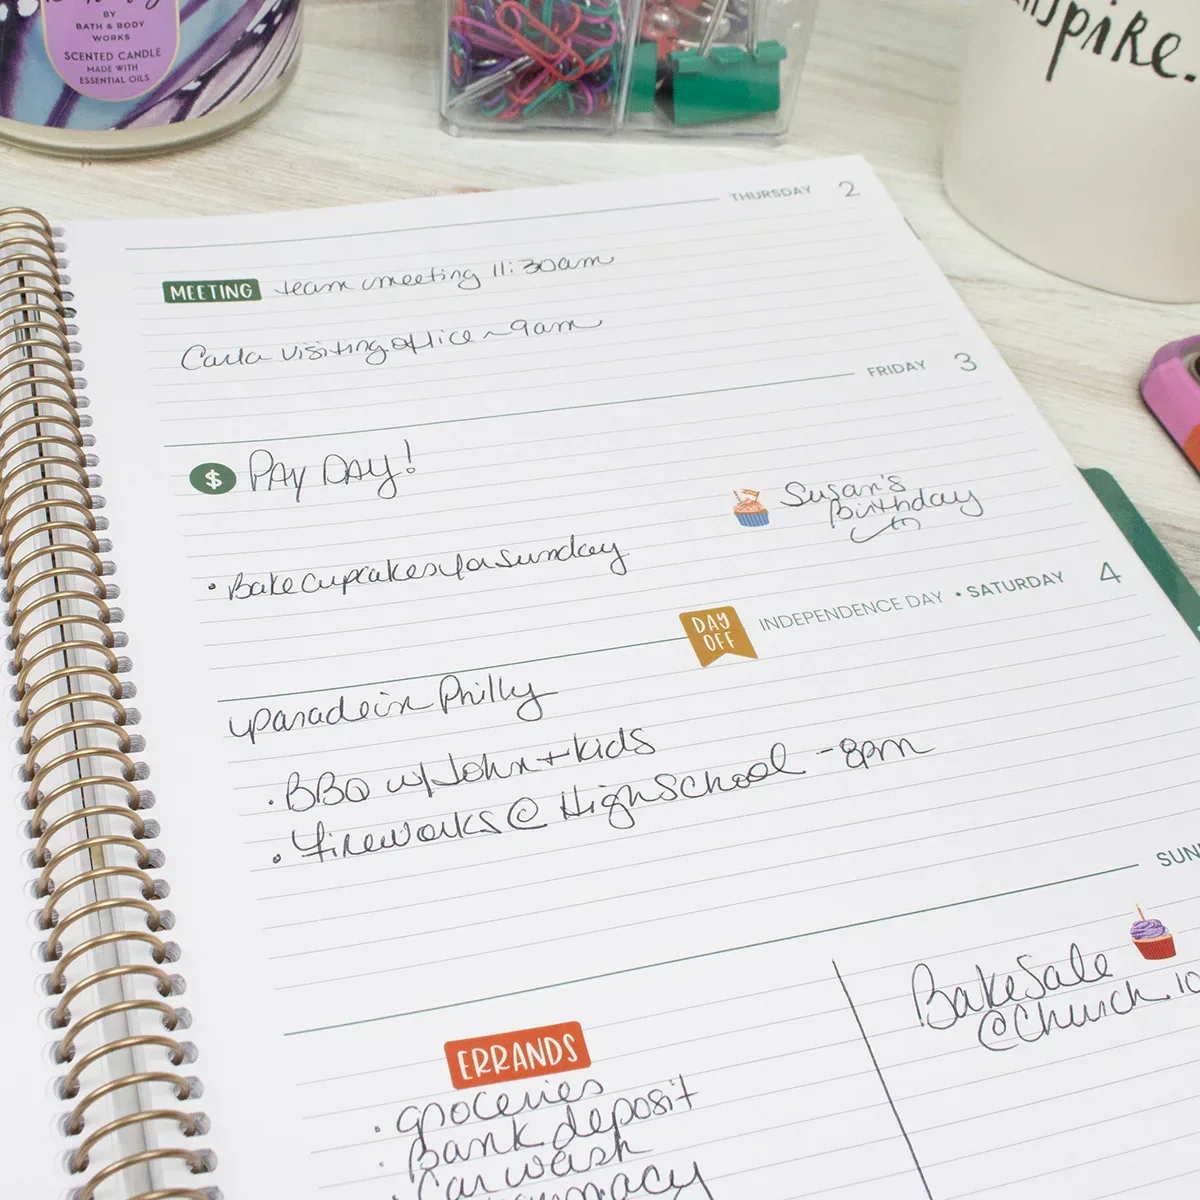 BY
BATH & BODY
WORKS
SCENTED CANDLE
MADE WITH
ESSENTIAL OILS
inspire.
THURSDAY 2
MEETING team meeting 11:30am
Carla visiting office ~9am
FRIDAY 3
$ PAY DAY!
Susan's
Birthday
• Bake cupcakes for Sunday
DAY
OFF
INDEPENDENCE DAY • SATURDAY 4
parade in Philly
• BBQ w/ John + kids
• Fireworks @ High School - 8pm
SUN
Bake Sale
@ Church. 10
ERRANDS
• groceries
• Bank deposit
• Car wash